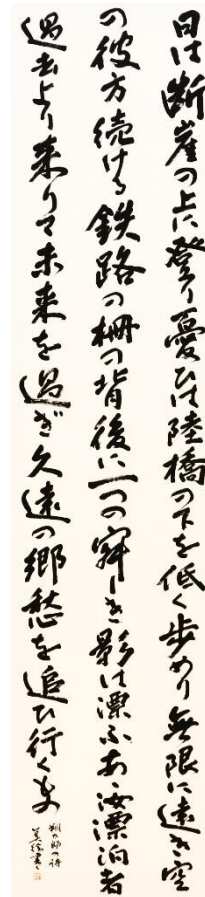 日は断崖の上に登り憂ひは陸橋の下を低く歩めり無限に遠き空
の彼方続ける鉄路の柵の背後に一つの寂しき影は漂ふあゝ汝漂泊者
過去より来りて未来を過ぎ久遠の郷愁を追ひ行くもの
朔太郎の詩